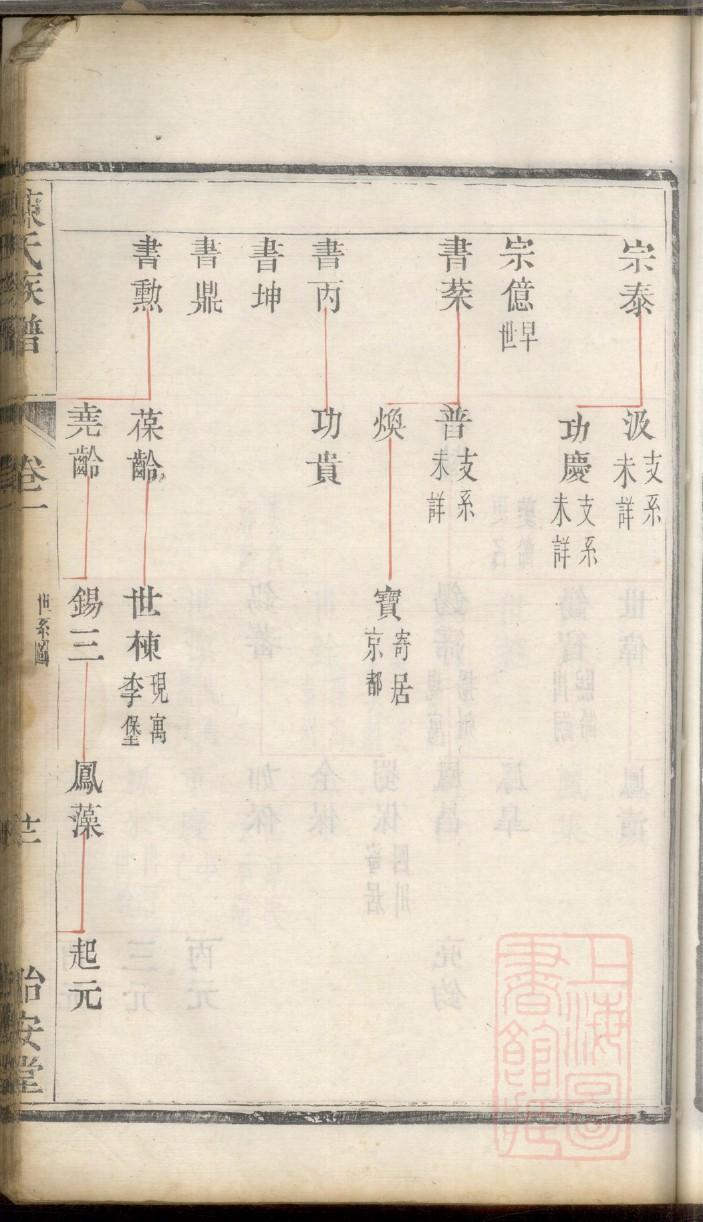 宗泰
汲
支系
未詳
功慶
支系
未詳
宗億
早
世
書棻
普
支系
未詳
煥
寶
寄居
京都
書丙
功貴
書坤
書鼎
書勲
葆齡
世棟
現寓
李堡
堯齡
錫三
鳳藻
起元
氏族譜
卷一
世系圖
怡安堂
上海圖
書館藏